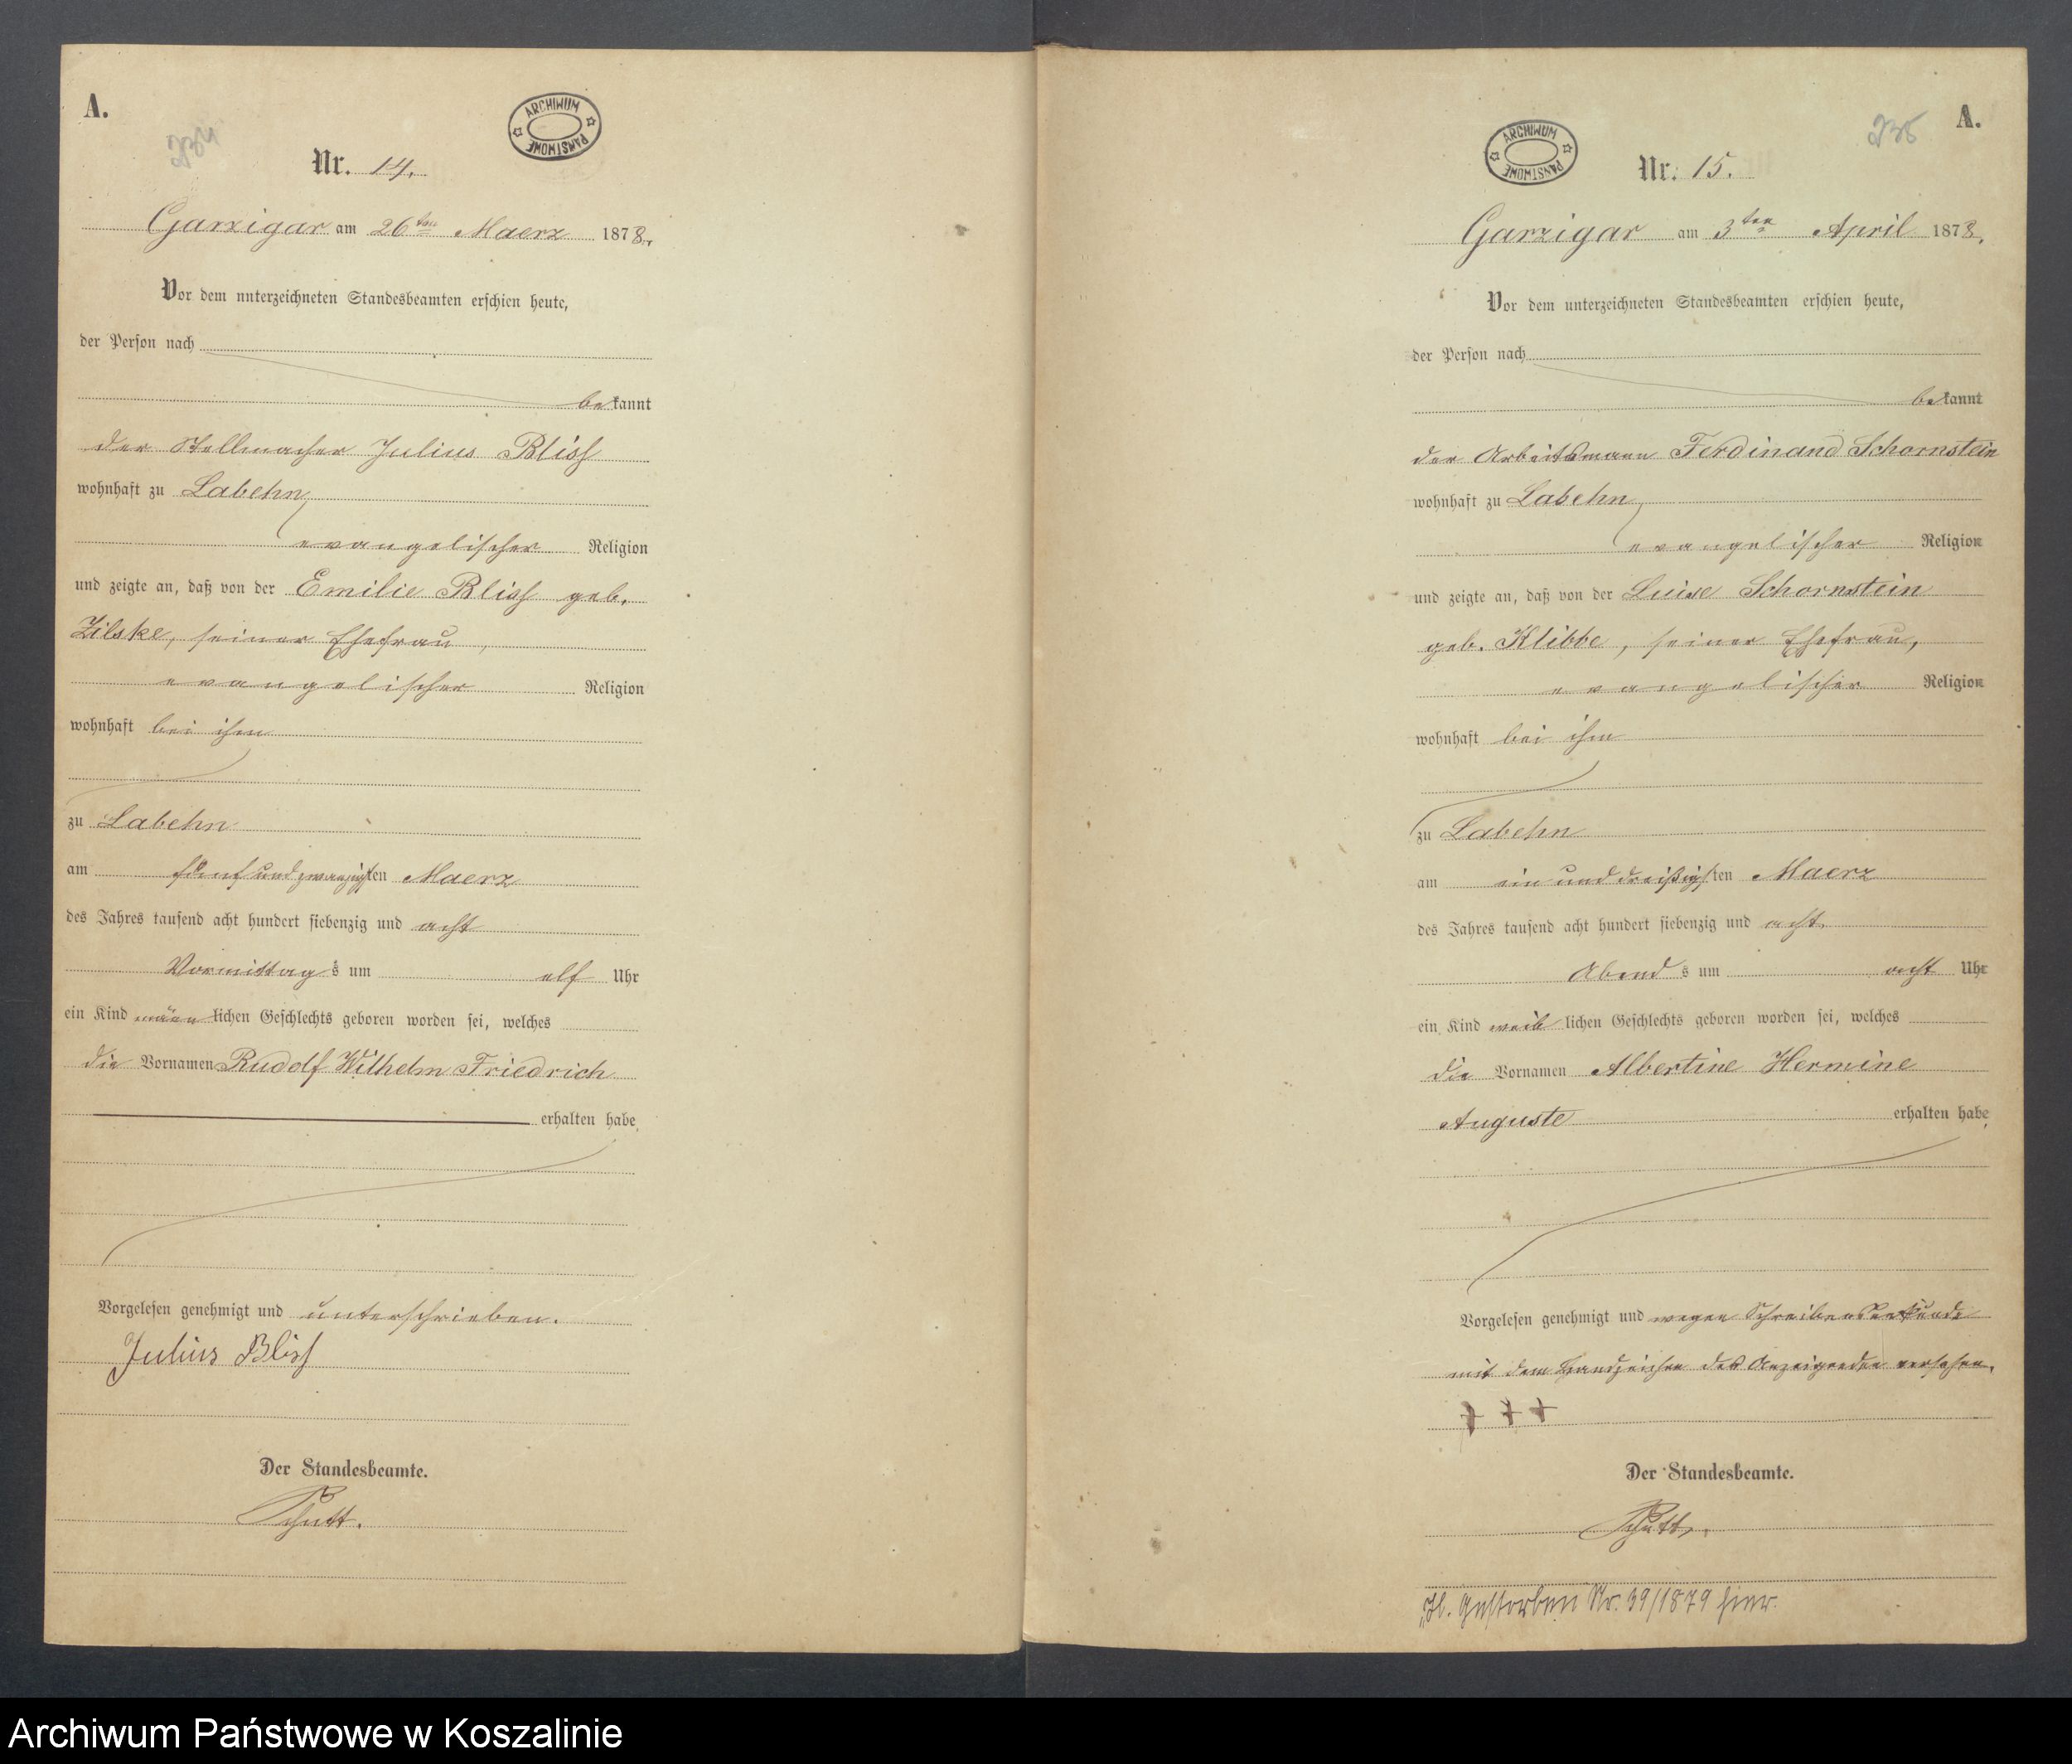 A.
234
ARCHIWUM PAŃSTWOWE
Nr. 14.
Garzigar am 26ten Maerz 1878.
Vor dem unterzeichneten Standesbeamten erschien heute,
der Person nach
bekannt
der Stellmacher Julius Bliss
wohnhaft zu Labehn,
evangelischer Religion
und zeigte an, daß von der Emilie Bliss geb.
Zilske, seiner Ehefrau,
evangelischer Religion
wohnhaft bei ihm
zu Labehn
am fünf und zwanzigsten Maerz
des Jahres tausend acht hundert siebenzig und acht
Vormittags um elf Uhr
ein Kind männlichen Geschlechts geboren worden sei, welches
die Vornamen Rudolf Wilhelm Friedrich
erhalten habe.
Vorgelesen genehmigt und unterschrieben.
Julius Bliss
Der Standesbeamte.
Schutt.
A.
235
ARCHIWUM PAŃSTWOWE
Nr. 15.
Garzigar am 3ten April 1878.
Vor dem unterzeichneten Standesbeamten erschien heute,
der Person nach
bekannt
der Arbeitsmann Ferdinand Schornstein
wohnhaft zu Labehn,
evangelischer Religion
und zeigte an, daß von der Luise Schornstein
geb. Klibbe, seiner Ehefrau,
evangelischer Religion
wohnhaft bei ihm
zu Labehn
am ein und dreißigsten Maerz
des Jahres tausend acht hundert siebenzig und acht
Abends um acht Uhr
ein Kind weiblichen Geschlechts geboren worden sei, welches
die Vornamen Albertine Hermine
Auguste erhalten habe.
Vorgelesen genehmigt und wegen Schreibensunkunde
mit dem Handzeichen des Anzeigenden versehen.
+ + +
Der Standesbeamte.
Schutt.
gestorben Nr. 39/1879 hier.
Archiwum Państwowe w Koszalinie